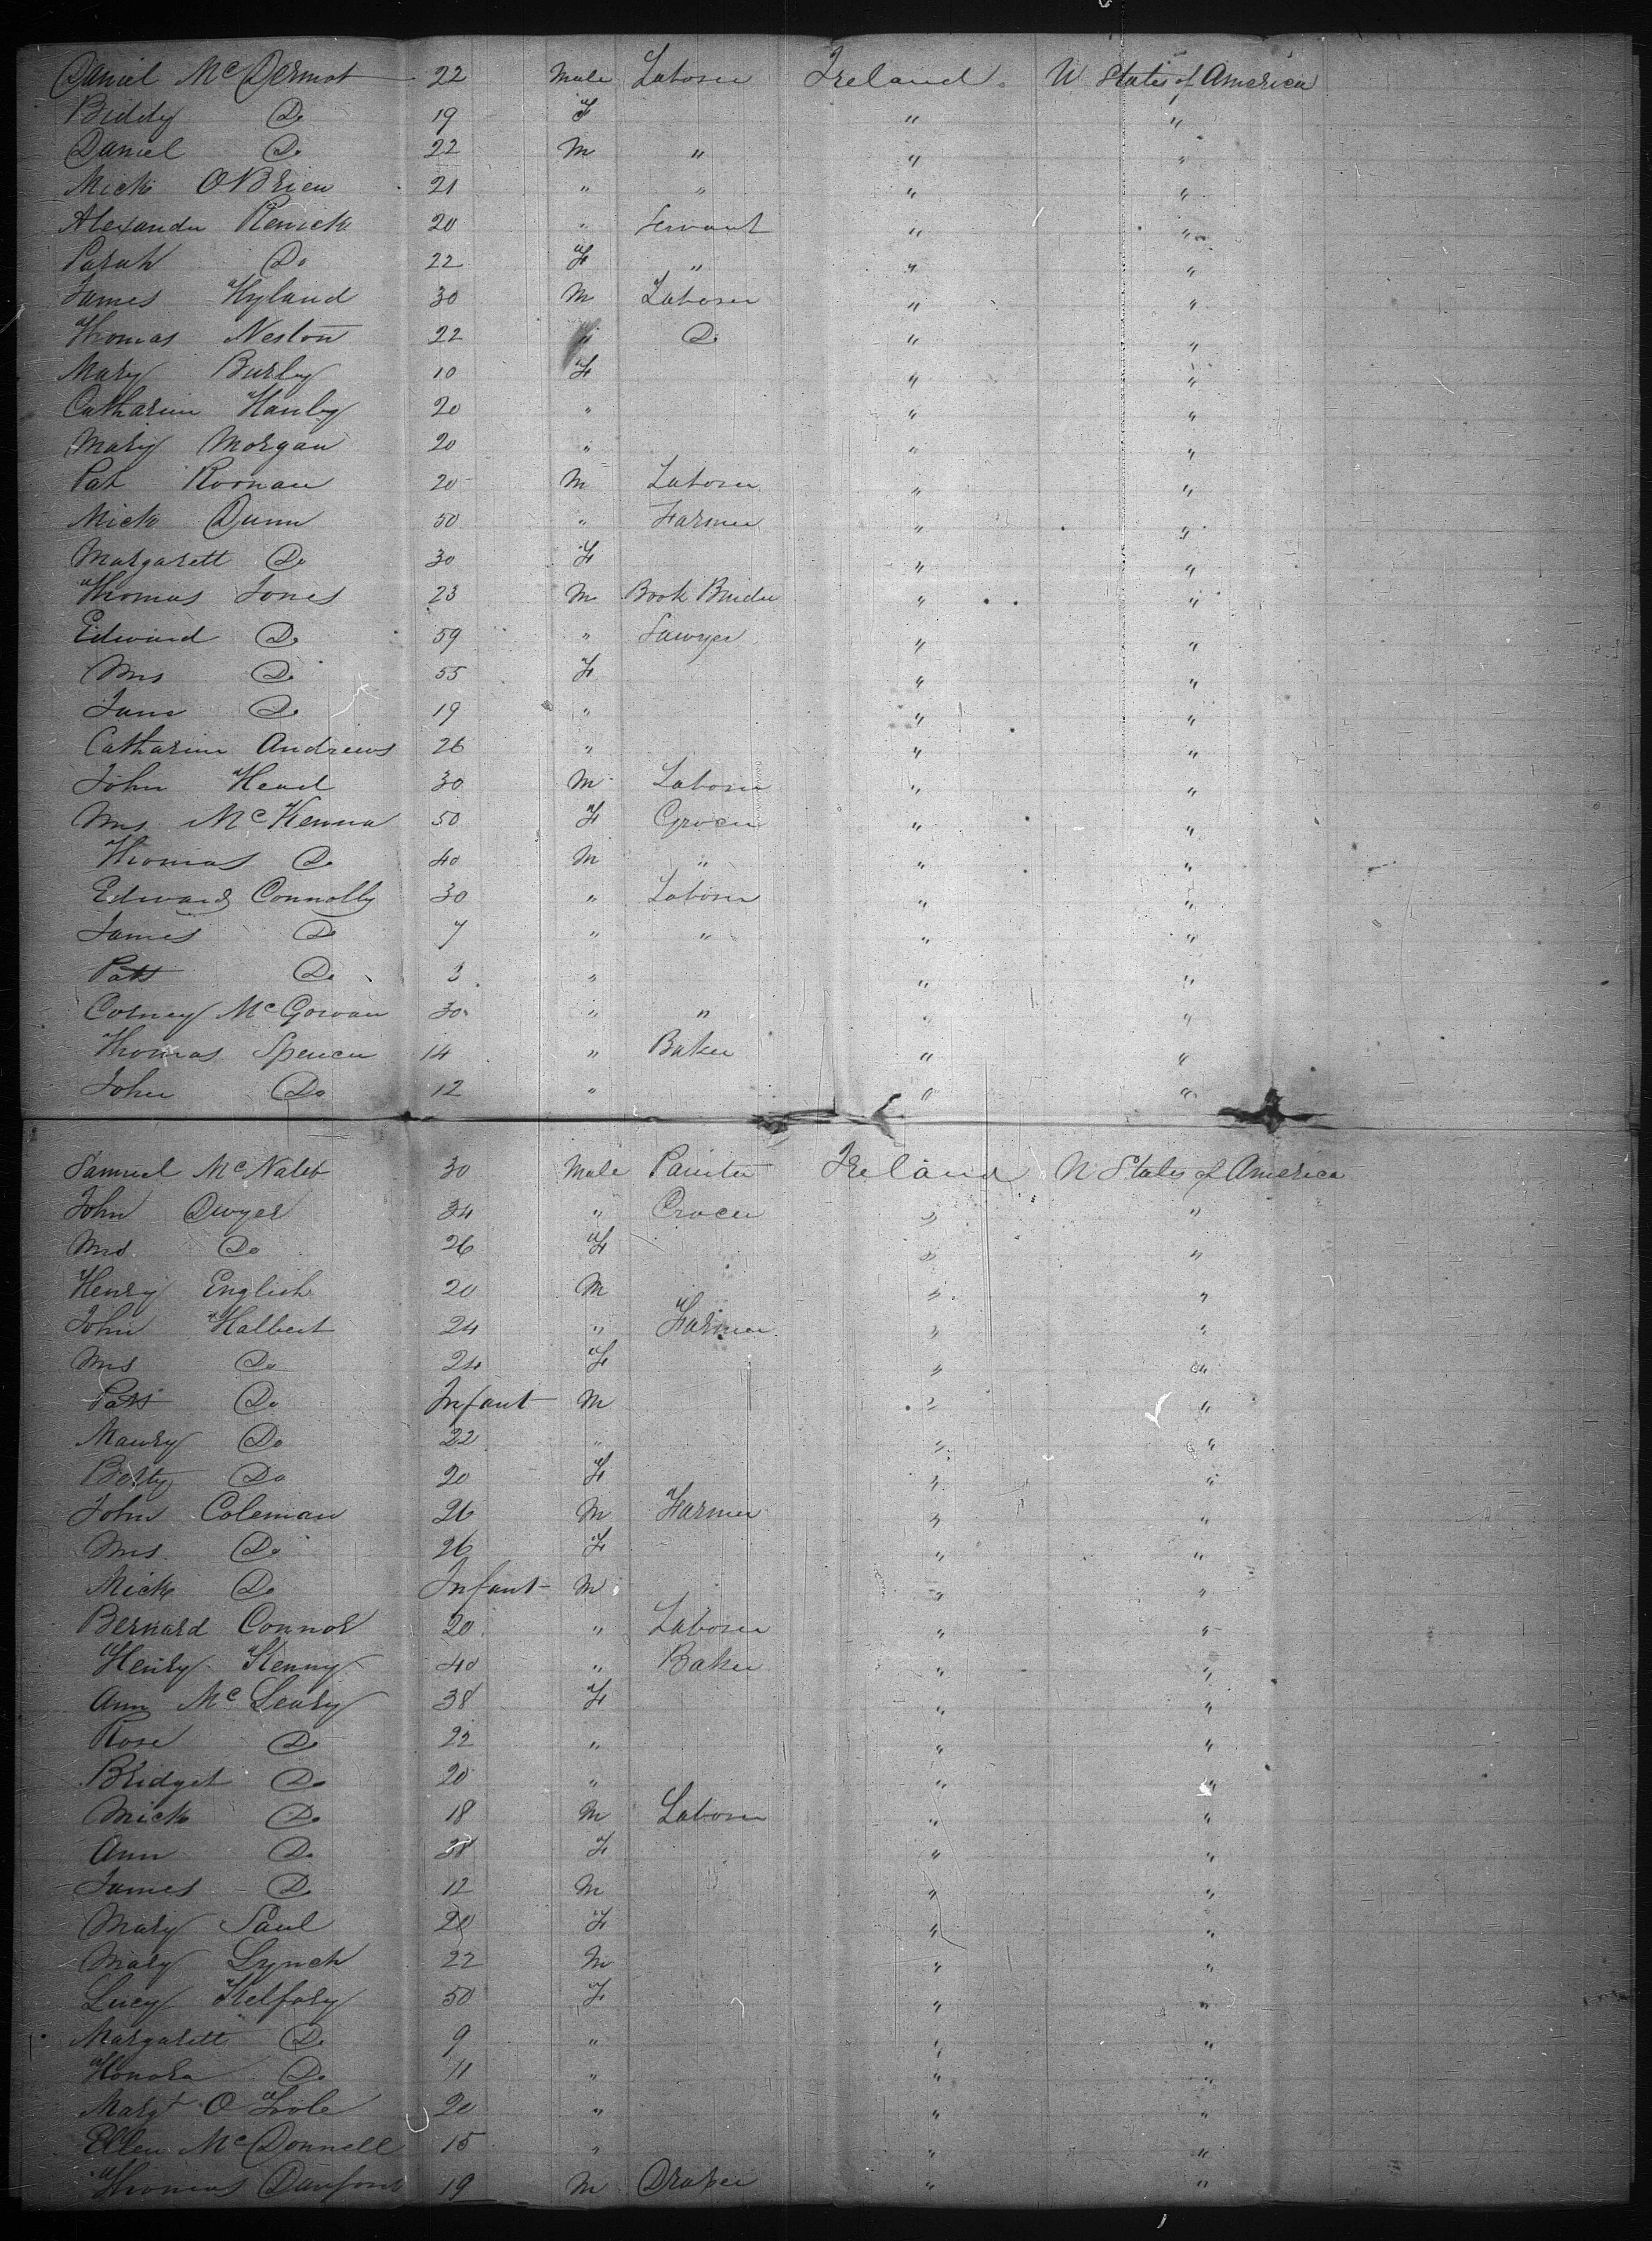 Daniel McDermot 22 Male Laborer Ireland. U States of America
Biddy Do 19 F " "
Daniel Do 22 M " " "
Mick OBrien 21 " " " "
Alexander Renick 20 " Servant " "
Sarah Do 22 F " " "
James Hyland 30 M Laborer " "
Thomas Neston 22 " Do " "
Mary Burly 10 F " "
Catharine Hanley 20 " " "
Mary Morgan 20 " " "
Pat Roonan 20 M Laborer " "
Mick Dunn 50 " Farmer " "
Margarett Do 30 F " "
Thomas Jones 23 M Book Binder " "
Edward Do 59 " Sawyer " "
Mrs Do 55 F " "
Jane Do 19 " " "
Catharine Andrews 26 " " "
John Head 30 M Laborer " "
Mrs McKenna 50 F Grocer " "
Thomas Do 40 M " " "
Edward Connolly 30 " Laborer " "
James Do 7 " " " "
Patt Do 3 " " "
Corney McGowan 30 " " " "
Thomas Spencer 14 " Baker " "
John Do 12 " " "
Samuel McNaleb 30 Male Painter Ireland U States of America
John Dwyer 34 " Grocer " "
Mrs Do 26 F " "
Henry English 20 M " "
John Halbert 24 " Farmer " "
Mrs Do 24 F " "
Patt Do Infant M " "
Maury Do 22 " " "
Betty Do 20 F " "
John Coleman 26 M Farmer " "
Mrs Do 26 F " "
Mick Do Infant M " "
Bernard Connor 20 " Laborer " "
Henry Kenny 40 " Baker " "
Ann McLeary 38 F " "
Rose Do 22 " " "
Bridget Do 20 " " "
Mick Do 18 M Laborer " "
Ann Do 38 F " "
James Do 12 M " "
Mary Saul 20 F " "
Mary Lynch 22 M " "
Lucy Kelfary 50 F " "
Margarett Do 9 " " "
Honora Do 11 " " "
Margt O Fole 20 " " "
Ellen McDonnell 15 " " "
Thomas Danford 19 M Draper " "